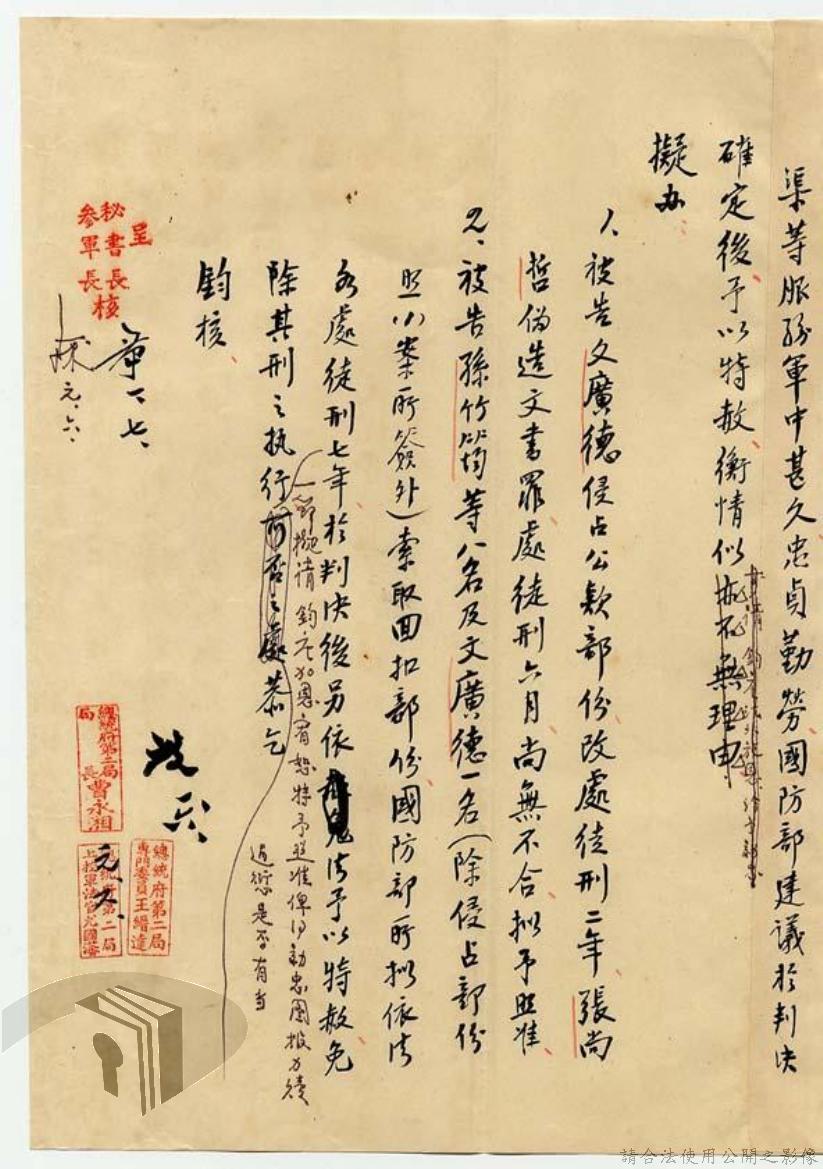 渠等服務軍中甚久忠貞勤勞國防部建議於判決
確定後予以特赦衡情似亦不無理由
擬办
1、被告文廣德侵占公款部份改處徒刑二年張尚
哲偽造文書罪處徒刑六月尚無不合拟予照准
2、被告孫竹筠等八名及文廣德一名(除侵占部份
照(1)案所簽外)索取回扣部份國防部所拟依法
各處徒刑七年於判決後另依法予以特赦免
除其刑之執行可否之處恭乞
一節擬請 鈞座加恩宥恕特予照准俾
忠圖報
是否有当
鈞核
呈
秘書長
參軍長
核
章一、七、
元、六、
總統府第二局
局長曹永湘
總統府第二局
專門委員王縉達
總統府第二局
元、六、
請合法使用公開之影像